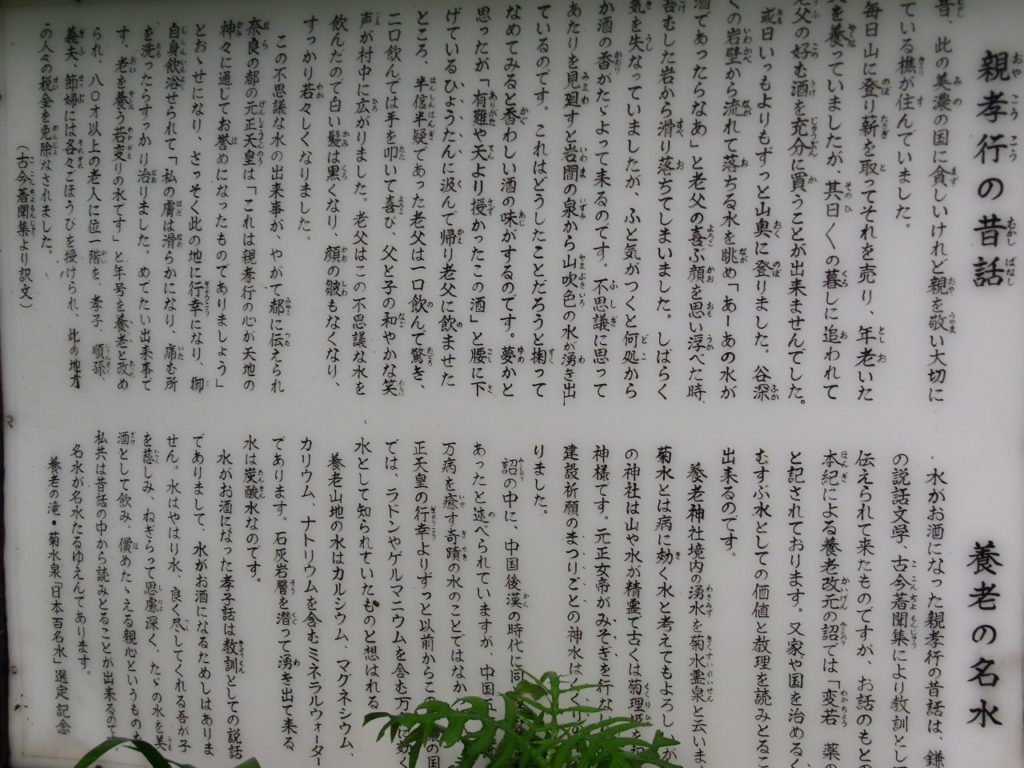 親孝行の昔話
昔、此の美濃の国に貧しいけれど親を敬い大切に
ている樵が住んでいました。
毎日山に登り薪を取ってそれを売り、年老いた
を養っていましたが、其日〱の暮しに追われて
老父の好む酒を充分に買うことが出来ませんでした。
或日いつもよりもずっと山奥に登りました。谷深
くの岩壁から流れて落ちる水を眺め「あーあの水が
酒であったらなあ」と老父の喜ぶ顔を思い浮べた時、
苔むした岩から滑り落ちてしまいました。しばらく
気を失なっていましたが、ふと気がつくと何処から
か酒の香がたゞよって来るのです。不思議に思って
あたりを見廻すと岩間の泉から山吹色の水が湧き出
ているのです。これはどうしたことだろうと掬って
なめてみると香わしい酒の味がするのです。夢かと
思ったが「有難や天より授かったこの酒」と腰に下
げているひょうたんに汲んで帰り老父に飲ませた
ところ、半信半疑であった老父は一口飲んで驚き、
二口飲んでは手を叩いて喜び、父と子の和やかな笑
声が村中に広がりました。老父はこの不思議な水を
飲んたので白い髪は黒くなり、顔の皺もなくなり、
すっかり若々しくなりました。
この不思議な水の出来事が、やがて都に伝えられ
奈良の都の元正天皇は「これは親孝行の心が天地の
神々に通じてお誉めになったものでありましょう」
とおゝせになり、さっそく此の地に行幸になり、御
自身飲浴せられて「私の膚は滑らかになり、痛む所
を洗ったらすっかり治りました。めでたい出来事で
す、老を養う若変りの水です」と年号を養老と改め
られ、八〇才以上の老人に位一階を、孝子、順孫、
義夫、節婦には各々ごほうびを授けられ、此の地方
の人々の税金を免除なされました。
(古今著聞集より訳文)
養老の名水
水がお酒になった親孝行の昔話は、鎌
の説話文学、古今著聞集により教訓として
伝えられて来たものですが、お話のもとの
本紀による養老改元の詔では「変若 薬の
と記されております。又家や国を治める
むすぶ水としての価値と教理を読みとるこ
出来るのです。
養老神社境内の湧水を菊水霊泉と云いま
菊水とは病に効く水と考えてもよろしが
の神社は山や水が精霊で古くは菊理姫を
神様です。元正女帝がみそぎを行な
建設祈願のまつりごとの神水は
りました。
詔の中に、中国後漢の時代に同
あったと述べられていますが、中国
万病を癒す奇蹟の水のことではなか
正天皇の行幸よりずっと以前からこ の国
では、ラドンやゲルマニウムを含む万 に効く
水として知られていたものと想はれる
養老山地の水はカルシウム、マグネシウム、
カリウム、ナトリウムを含むミネラルウォーター
であります。石灰岩層を潜って湧き出て来る
水は炭酸水なのです。
水がお酒になった孝子話は教訓としての説話
でありまして、水がお酒になるためしはありま
せん。水はやはり水、良く尽してくれる吾が子
を慈しみ、ねぎらって思慮深く、たゞの水を美
酒として飲み、償めたゝえる親心というもの
私共は昔話の中から読みとることが出来るので
名水が名水たるゆえんであります。
養老の滝・菊水泉「日本百名水」選定記念